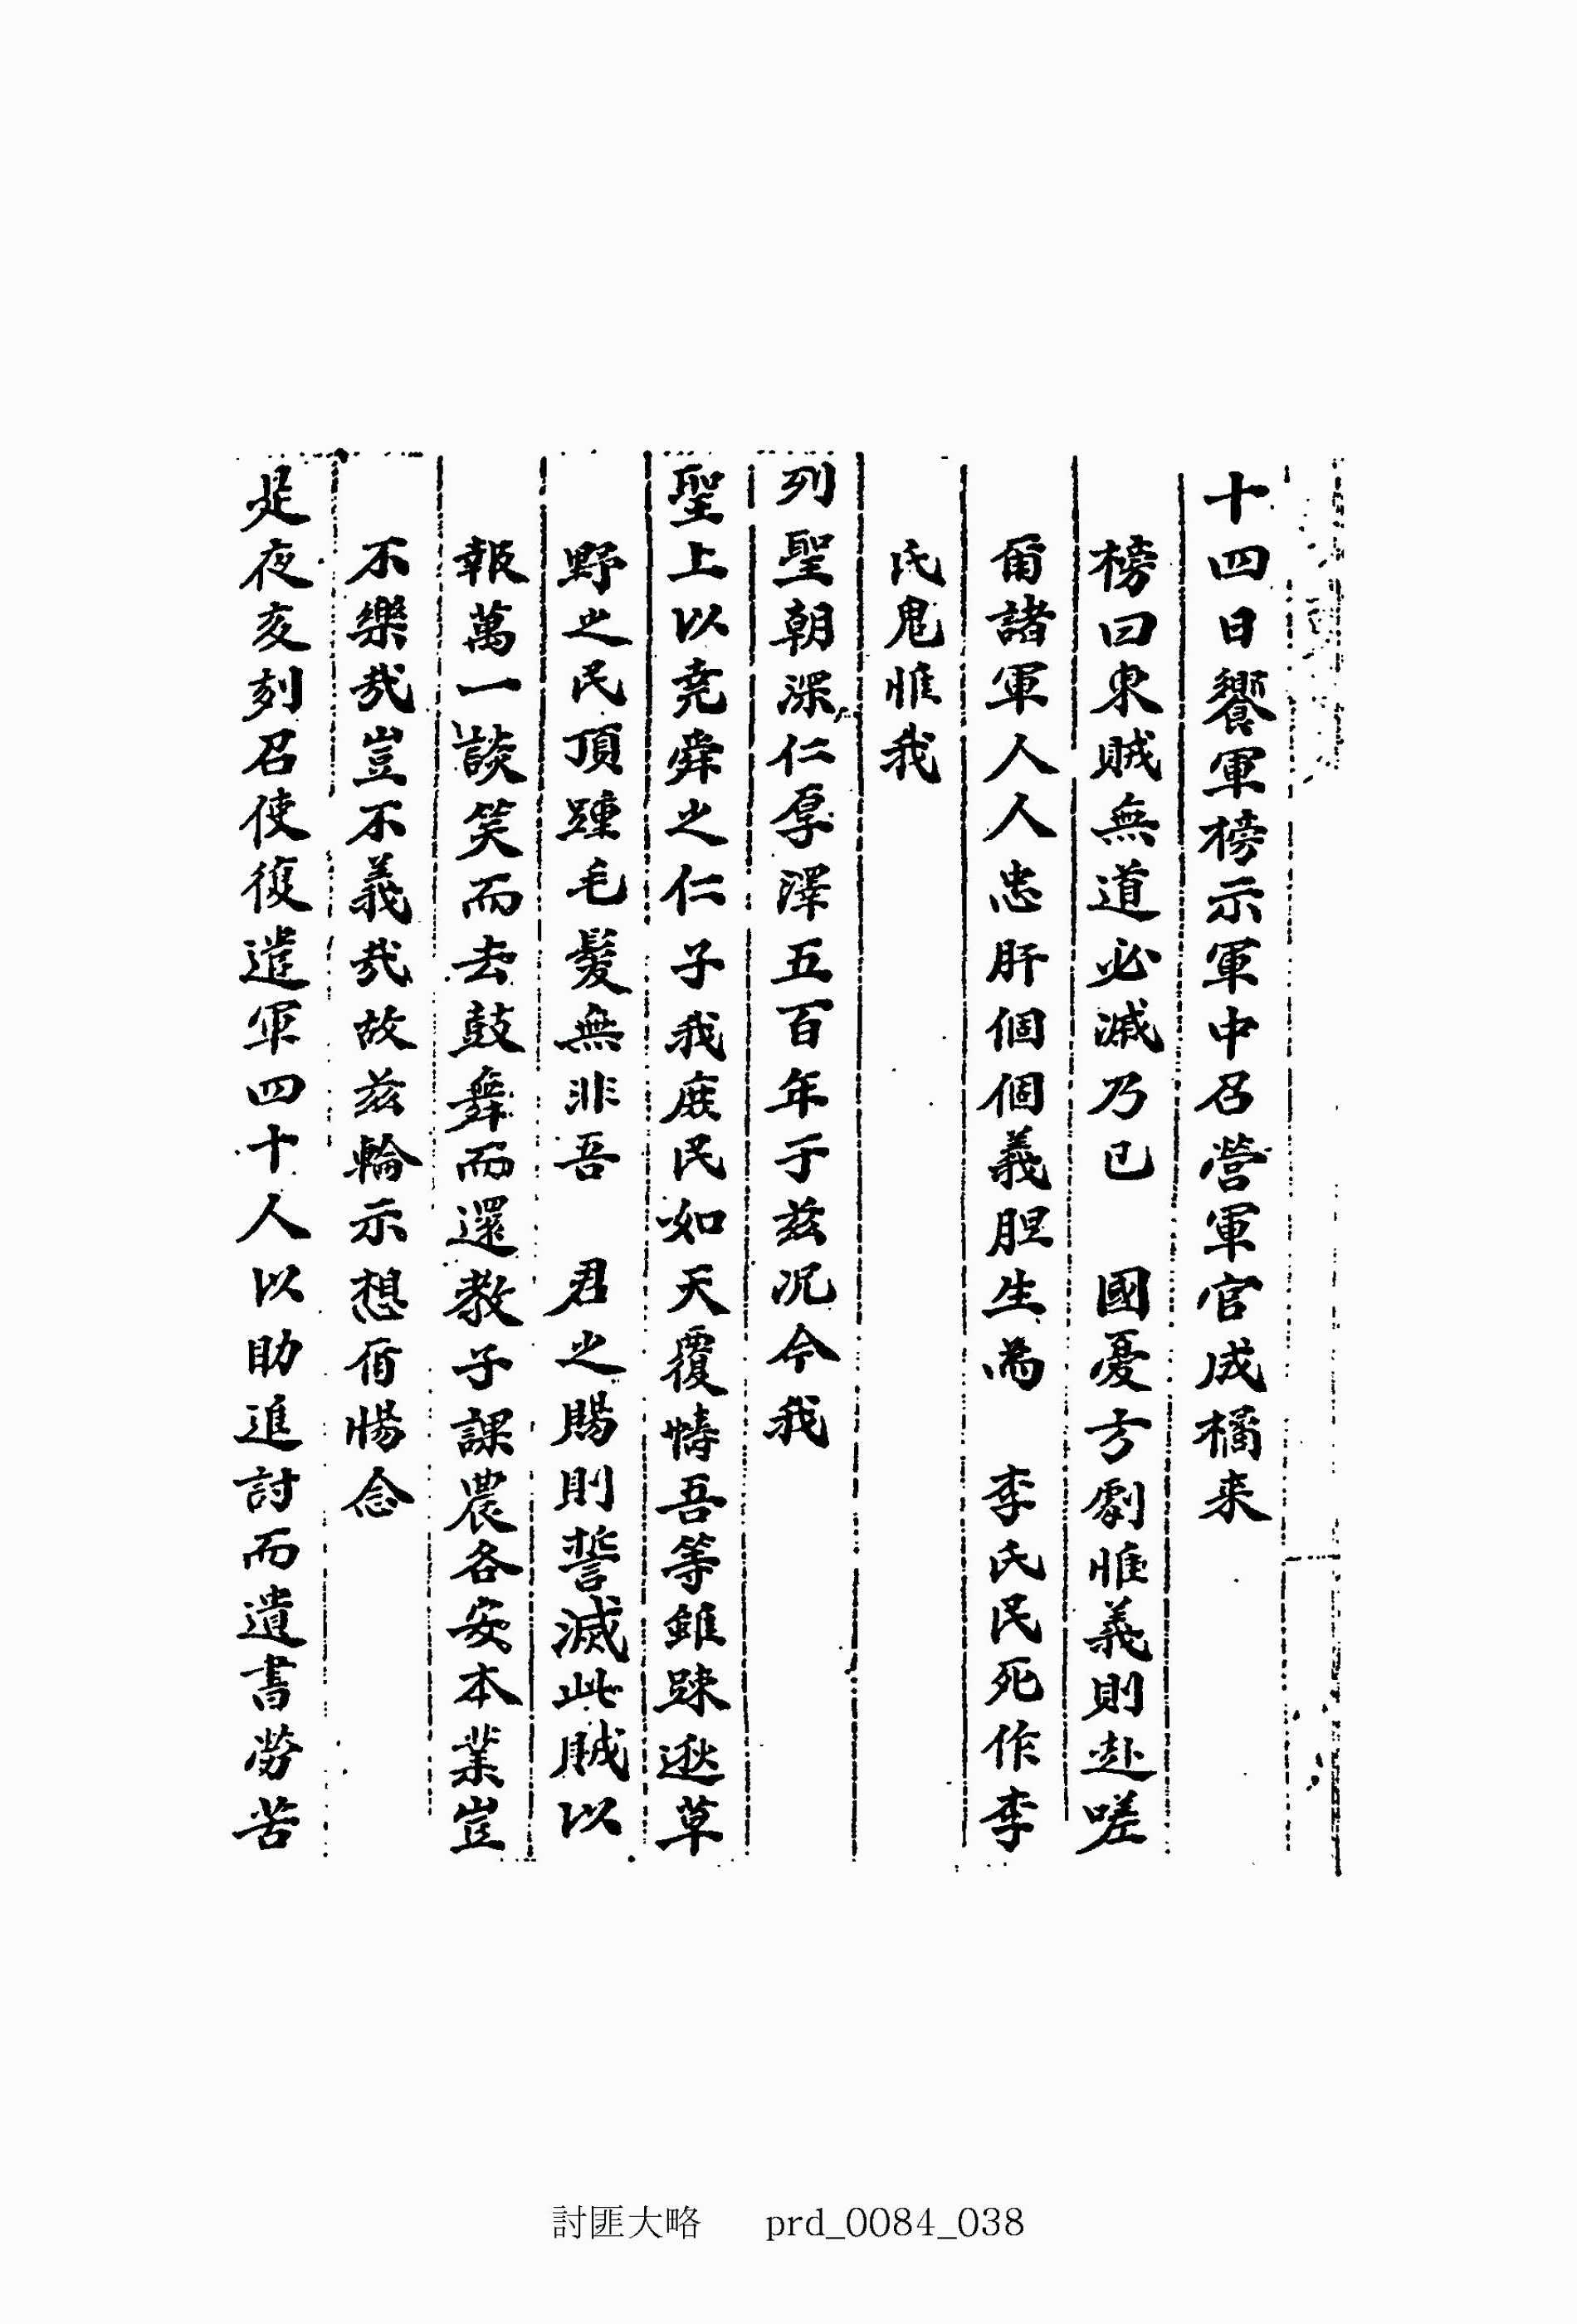 十四日饗軍榜示軍中召營軍官成橘來
榜曰東賊無道必滅乃已 國憂方劇惟義則赴嗟
爾諸軍人人忠肝個個義胆生爲 李氏民死作李
氏鬼惟我
列聖朝深仁厚澤五百年于玆况今我
聖上以堯舜之仁子我庶民如天覆幬吾等雖踈逖草
野之民頂踵毛髮無非吾 君之賜則誓滅此賊以
報萬一談笑而去鼓舞而還敎子課農各安本業豈
不樂哉豈不義哉故玆輪示想宿惕念
是夜亥刻召使復遣軍四十人以助進討而遺書勞苦
討匪大略 prd_0084_038